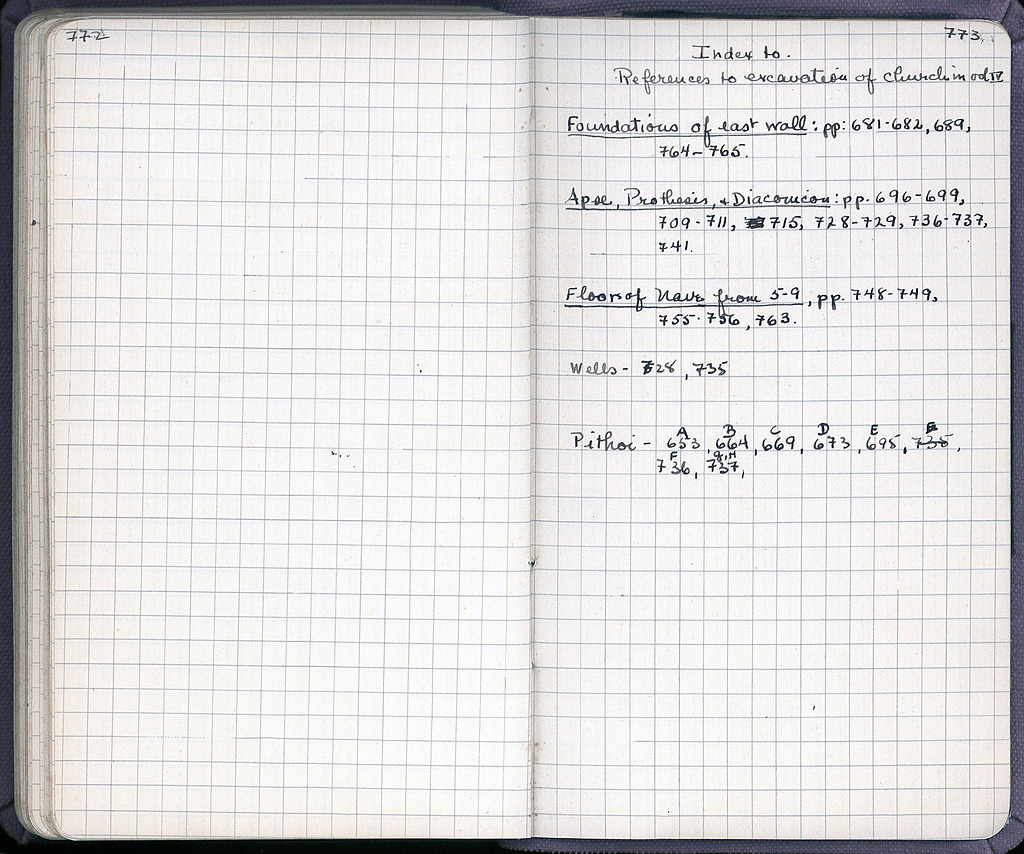 772
773
Index to.
References to excavation of church in od IV
Foundations of east wall: pp: 681-682, 689,
764-765.
Apse, Prothesis, + Diaconicon: pp. 696-699,
709-711, 715, 728-729, 736-737,
741.
Floors of Nave from 5-9, pp. 748-749,
755-756, 763.
Wells - 728, 735
A B C D E
Pithoi - 653, 664, 669, 673, 695, 735,
F G, H
736, 737,